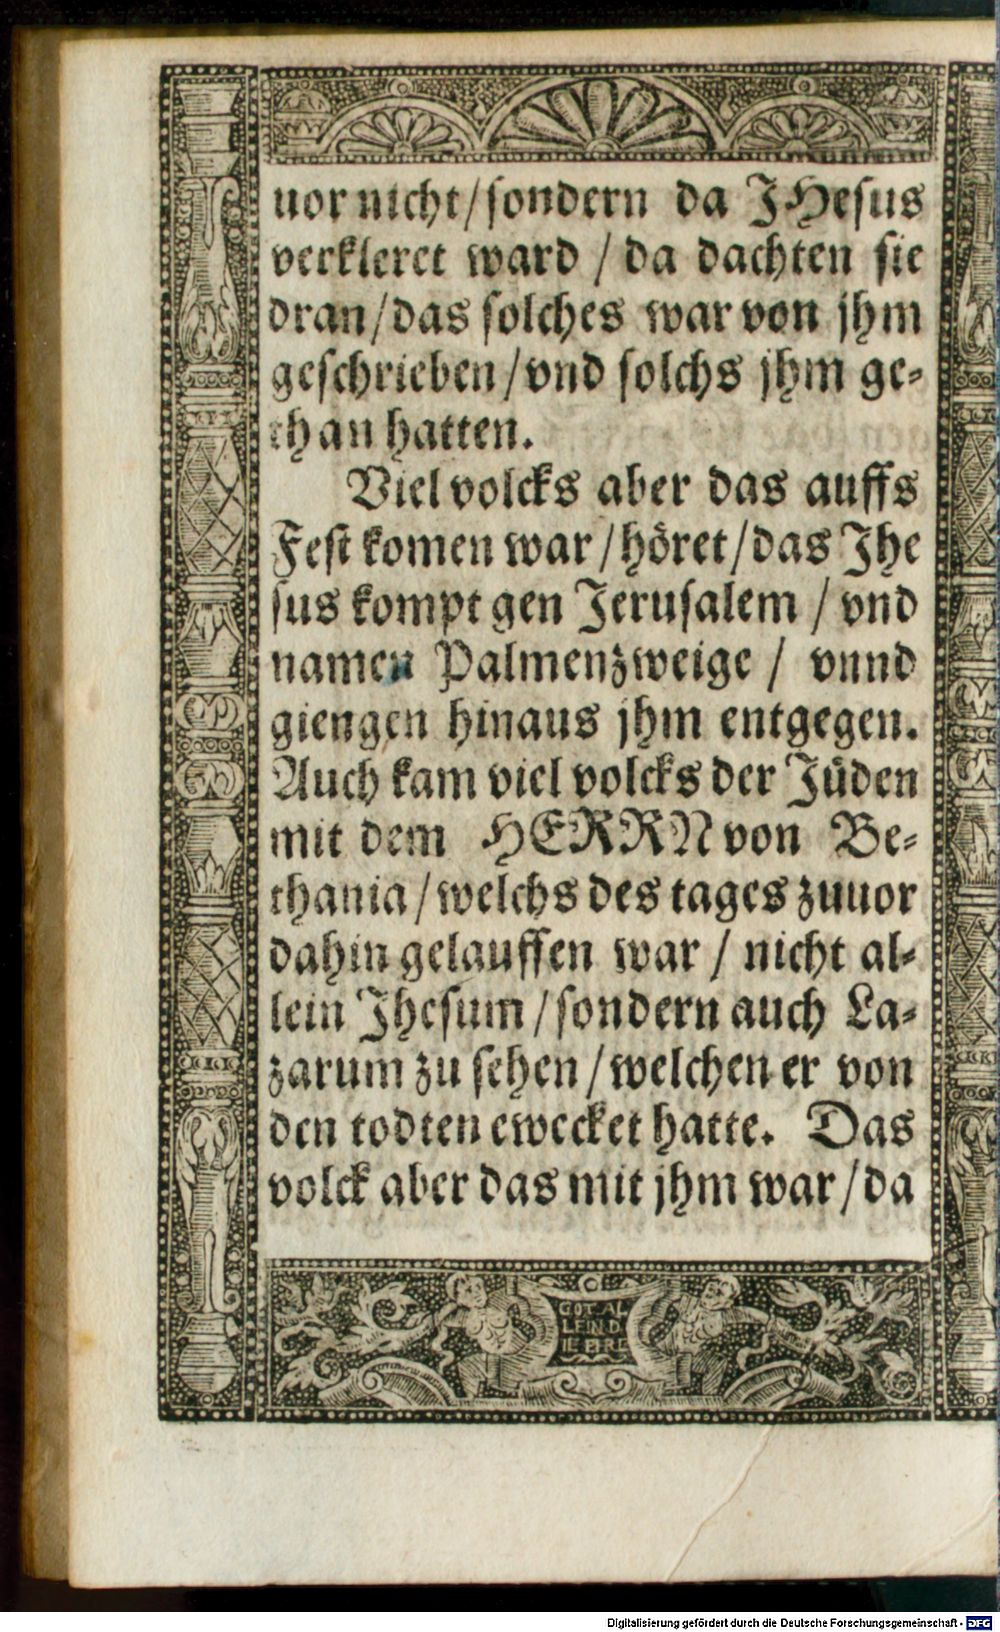 uor nicht/sondern da JHesus
verkleret ward / da dachten sie
dran/das solches war von jhm
geschrieben/vnd solchs jhm ge-
than hatten.
Viel volcks aber das auffs
Fest komen war/höret/das Jhe
sus kompt gen Jerusalem / vnd
namen Palmenzweige / vnnd
giengen hinaus jhm entgegen.
Auch kam viel volcks der Jüden
mit dem HERRN von Be-
thania/welchs des tages zuuor
dahin gelauffen war / nicht al-
lein Jhesum/sondern auch La-
zarum zu sehen/welchen er von
den todten ewecket hatte. Das
volck aber das mit jhm war/da
GOT AL
LEIN D
IE EIRE
Digitalisierung gefördert durch die Deutsche Forschungsgemeinschaft - DFG